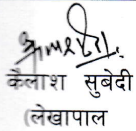 कैलाश सुवेदी
(लेखापाल